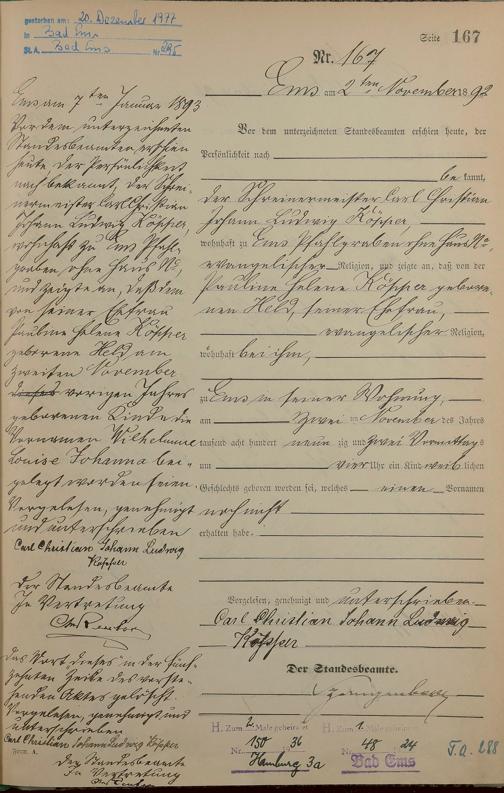 gestorben am: 20. Dezember 1977
in Bad Ems
St. A. Bad Ems Nr.
Seite 167
Nr. 167
Ems am 2ten November 1892
Vor dem unterzeichneten Standesbeamten erschien heute, der
Persönlichkeit nach
be kannt,
der Schreinermeister Carl Christian
Johann Ludwig Köpper,
wohnhaft zu Ems Pfahlgraben ohne Haus No,
evangelischer Religion, und zeigte an, daß von der
Pauline Helene Köpper gebore-
nen Held, seiner Ehefrau,
evangelischer Religion,
wohnhaft bei ihm,
zu Ems in seiner Wohnung,
am zwei ten November des Jahres
tausend acht hundert neun zig und zwei Vormittags
um vier Uhr ein Kind weib lichen
Geschlechts geboren worden sei, welches einen Vornamen
noch nicht
erhalten habe.
Vorgelesen, genehmigt und unterschrieben
Carl Christian Johann Ludwig
Köpper
Der Standesbeamte.
Ems am 7ten Januar 1893
Vor dem unterzeichneten
Standesbeamten erschien
heute der Persönlichkeit
nach bekannt, der Schrei-
nermeister Carl Christian
Johann Ludwig Köpper,
wohnhaft zu Ems Pfahl-
graben ohne Haus No,
und zeigte an, daß dem
von seiner Ehefrau
Pauline Helene Köpper
geborene Held am
zweiten November
dieses vorigen Jahres
geborenen Kinde die
Vornamen Wilhelmine
Louise Johanna bei-
gelegt worden seien.
Vorgelesen, genehmigt
und unterschrieben
Carl Christian Johann Ludwig
Köpper
Der Standesbeamte
In Vertretung
Das Wort dieses in der fünf-
zehnten Zeile des vorste-
henden Aktes gelöscht.
Vorgelesen, genehmigt und
unterschrieben
Carl Christian Johann Ludwig Köpper
Der Standesbeamte
In Vertretung
Form A.
H. Zum 2. Male geheiratet
Nr. 150 36
Hamburg 3a
H. Zum 1. Male geheiratet
Nr. 48 24
Bad Ems